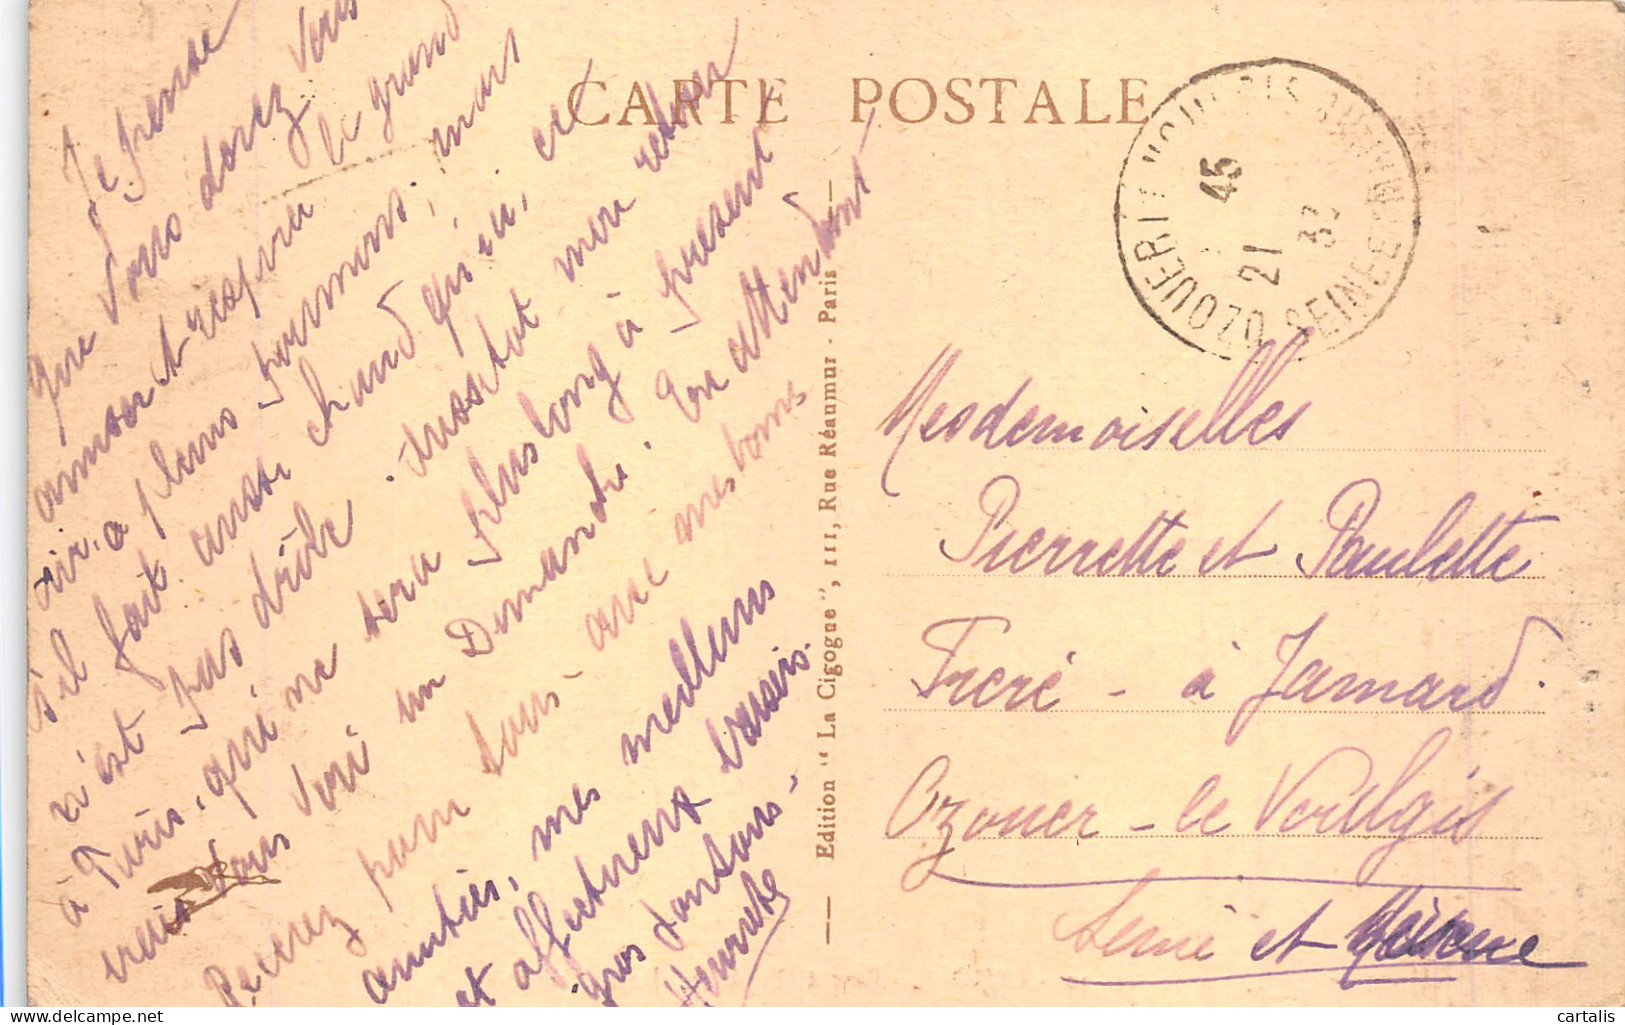 CARTE POSTALE
Je pense
que vous devez vous
amuser et respirer le grand
air, à pleins poumons, mais
s'il fait aussi chaud qu'ici, ce
n'est pas drôle. Aussitôt mon retour
à Paris, qui ne sera plus long à présent
irais vous voir un Dimanche. En attendant
Recevez pour tous avec mes bonnes
amitiés, mes meilleurs
et affectueux baisers.
gros
Henriette
Edition "La Cigogne", 111, Rue Réaumur - Paris
OZOUER
SEINE ET M
45
21
Mesdemoiselles
Pierrette et Paulette
Freré - à Jamard.
Ozouer-le Voulgis
Seine et Marne
cartalis